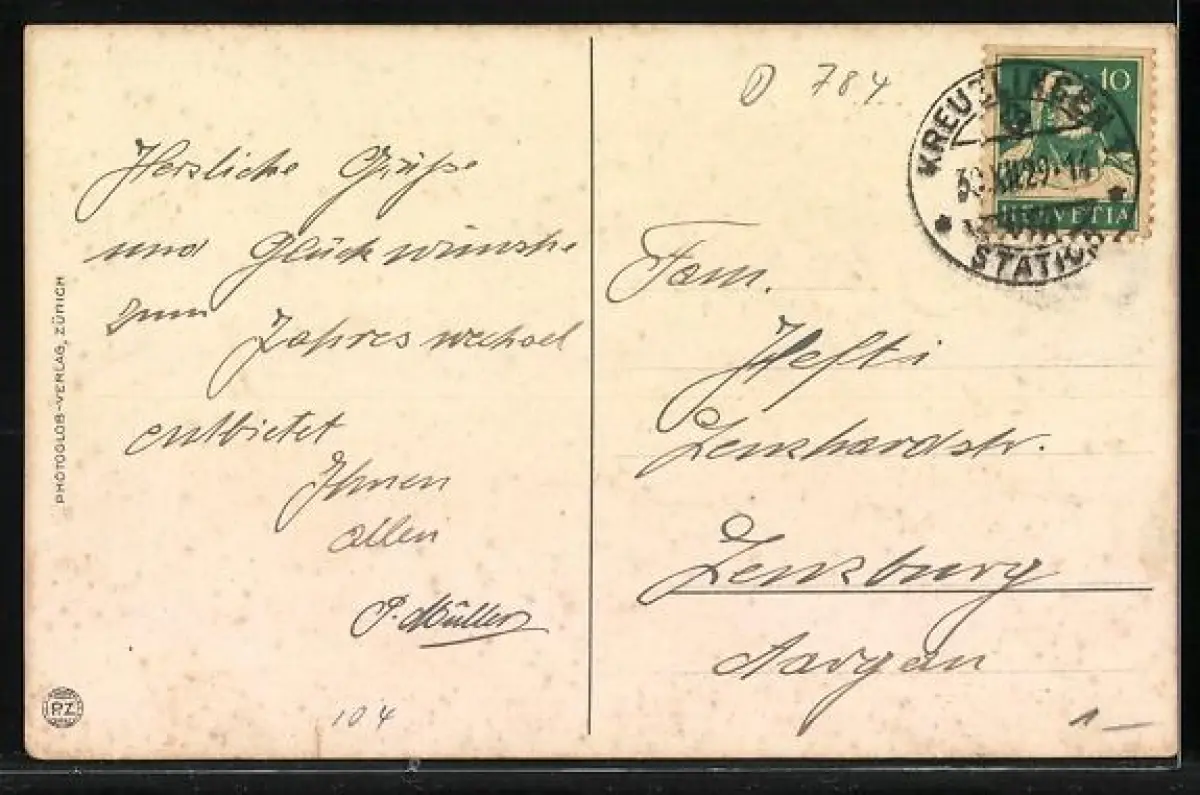 Herzliche Grüsse
und Glückwünsche
zum Jahreswechsel
entbietet
Ihnen
allen
P. Müller
104
PHOTOGLOB-VERLAG, ZÜRICH
P.Z
D 784
10
HELVETIA
KREUZLINGEN
30.XII.29-14
STATION
Fam.
Hefti
Lenzhardstr.
Lenzburg
Aargau